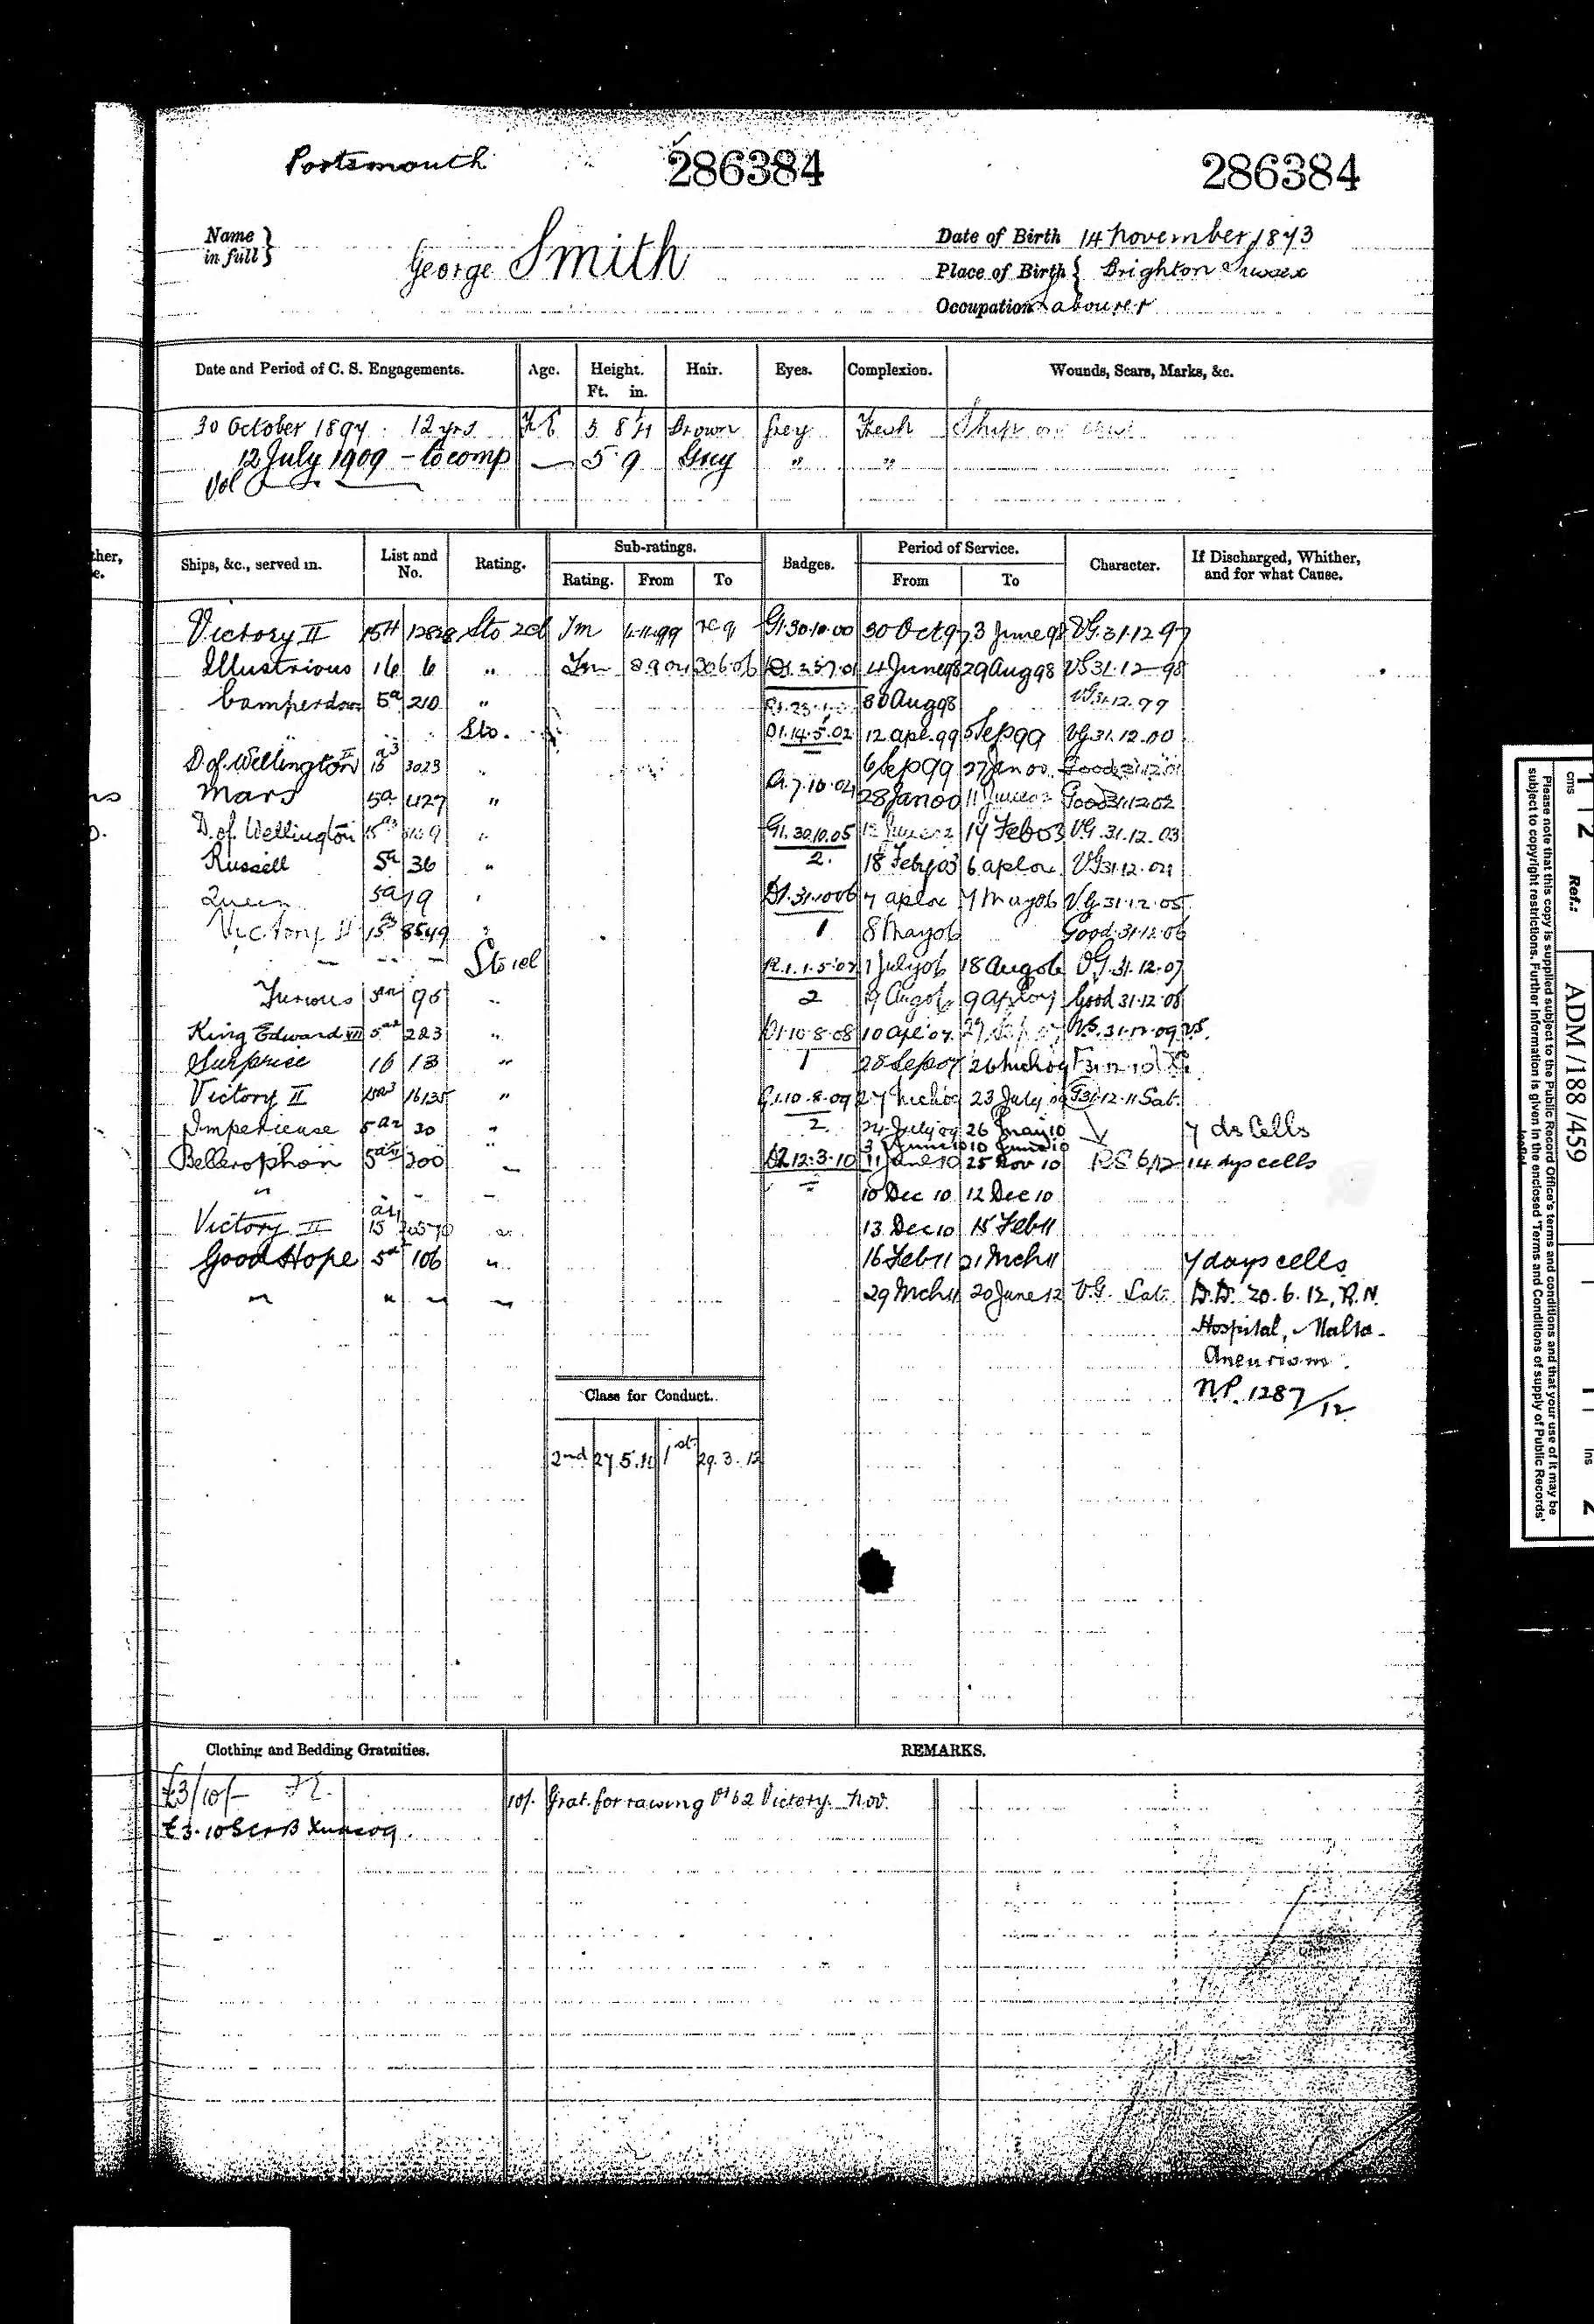 Portsmouth 286384 286384
Name in full } George Smith
Date of Birth 14 November 1873
Place of Birth { Brighton Sussex
Occupation Labourer
Date and Period of C. S. Engagements. Age. Height. Ft. in. Hair. Eyes. Complexion. Wounds, Scars, Marks, &c.
30 October 1897 . 12 yrs 5 8 Brown Grey Fresh Ship on
12 July 1909 – to comp — 5 9 Grey " "
Vol
ther,
e.
Ships, &c., served in. List and No. Rating. Sub-ratings. Rating. From To Badges. Period of Service. From To Character. If Discharged, Whither, and for what Cause.
Victory II 15A 12828 Sto 2cl Tm 99 G1.30.10.00 30 Oct 97 3 June 98 VG.31.12.97
Illustrious 16 6 " Tm 4 June 98 29 Aug 98 VG 31.12.98
Camperdown 5a 210 " 30 Aug 98 VG.31.12.99
Sto. D1.14.5.02 12 Apl. 99 5 Sep 99 VG.31.12.00
D of Wellington II 15 a3 3023 " 6 Sep 99 27 Jan 00 Good 31.12.01
Mars 5a 427 " 7.10.04 28 Jan 00 11 June 02 Good 31.12.02
D. of Wellington 15a3 " G1.30.10.05 12 June 02 17 Feb 03 VG.31.12.03
Russell 5a 36 " 2. 18 Feby 03 6 Apl 04 VG 31.12.04
Queen 5a 19 " D1.31.10.06 7 Apl 04 7 May 06 V.G.31.12.05
Victory II 15a3 8549 " 1 8 May 06 Good.31.12.06
Sto 1cl R.1.1.5.07 1 July 06 18 Aug 06 VG.31.12.07
Furious 95 " 2 19 Aug 06 9 Apl 07 Good 31.12.08
King Edward VII 5a2 223 " D1.10.8.08 10 Apl 07 VG.31.12.09
Surprise 16 13 " 1 28 Sep 07 26 Mch 09 F 31.12.10
Victory II 15a3 16135 " G1.10.8.09 27 Mch 09 23 July 09 G 31.12.11 Sat.
Imperieuse 5a2 30 " 2. 24 July 09 26 May 10 7 ds Cells
3 June 10 10 June 10
Bellerophon 5a 200 " D2.12.3.10 11 June 10 25 Nov 10 14 dys cells
" – – 10 Dec 10 12 Dec 10
Victory II 15 " 13 Dec 10 15 Feb 11
Good Hope 5a 106 " 16 Feb 11 21 Mch 11 7 days cells
" " " " 29 Mch 11 20 June 12 V.G. Sat. D.D. 20.6.12, R.N.
Hospital, Malta.
Aneurism.
N.P. 1287/12
Class for Conduct.
2nd 27.5.11 1st 29.3.12
Clothing and Bedding Gratuities. REMARKS.
£3/10/- 10/. Grat. for raising Victory. Nov.
£3.10
cms 1 2 Ref.: ADM / 188 / 459 1 ins 2
Please note that this copy is supplied subject to the Public Record Office's terms and conditions and that your use of it may be
subject to copyright restrictions. Further information is given in the enclosed 'Terms and Conditions of supply of Public Records'
leaflet